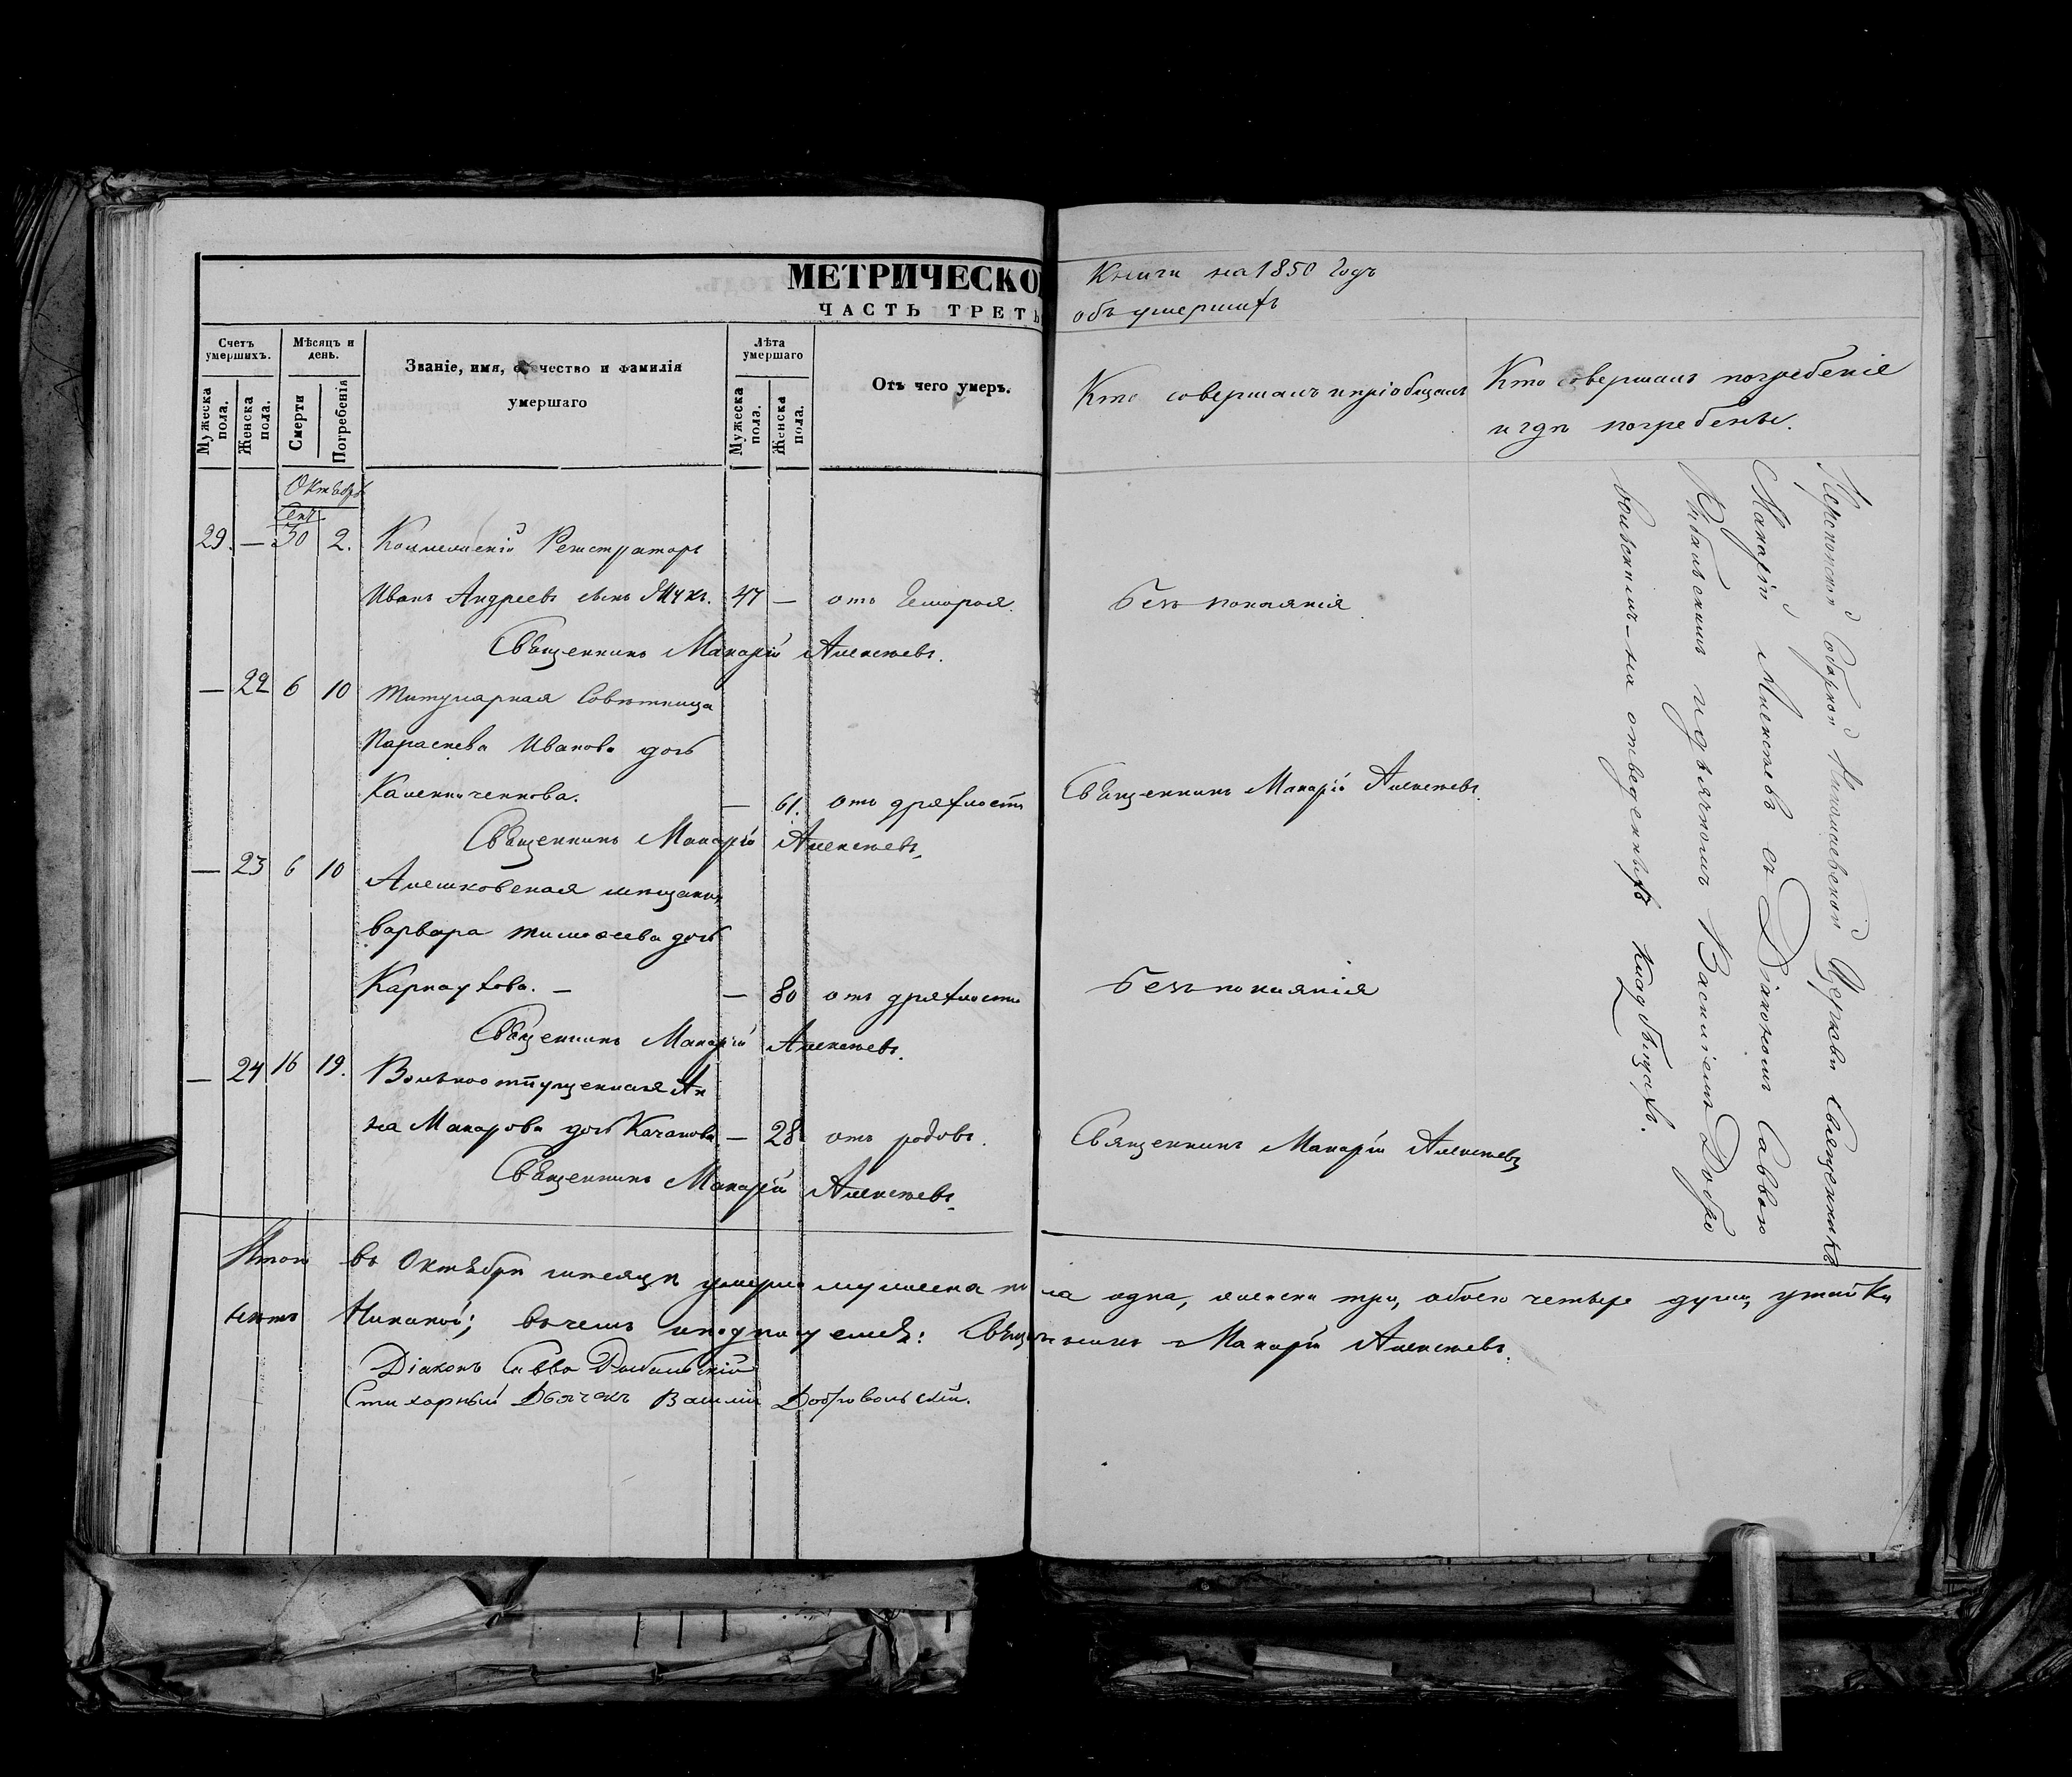 МЕТРИЧЕСКО
ЧАСТЬ ТРЕТЬ
Книги на 1850 Годъ
объ умершихъ
Счетъ умершихъ.
Мѣсяцъ и день.
Званіе, имя, отчество и фамилія умершаго
Лѣта умершаго
Отъ чего умеръ.
Мужеска пола.
Женска пола.
Смерти
Погребенія
Мужеска пола.
Женска пола.
Кто совершалъ и пріобщалъ
Кто совершалъ погребеніе
и гдѣ погребены.
Октябрь
Сент.
29. — 30 2. Коллежскій Регистраторъ
Иванъ Андреевъ сынъ 47 — отъ
Безъ покаянія.
Священникъ Макарій Алексѣевъ.
— 22 6 10 Титулярная Совѣтница
Параскева Иванова дочь
Каленниченкова. — 61. отъ дряхлости
Священникъ Макарій Алексѣевъ.
Священникъ Макарій Алексѣевъ.
— 23 6 10 Алешковская мѣщанка
Варвара Тимоѳеева дочь
Карнаухова. — — 80 отъ дряхлости
Безъ покаянія
Священникъ Макарій Алексѣевъ.
— 24 16 19. Вольноотпущенная Ан
на Макарова дочь Качанова — 28 отъ родовъ.
Священникъ Макарій Алексѣевъ
Священникъ Макарій Алексѣевъ.
Херсонской Соборной Николаевской Церкви Священникъ
Макарій Алексѣевъ съ Діакономъ Саввою
Рыбальскимъ и дьячкомъ Василіемъ Добро
вольскимъ на отведенныхъ кладбищахъ.
Итого въ Октябрѣ мѣсяцѣ умерло мужеска пола одна, женска три, обоего четыре души, утайки
нѣтъ никакой; въ чемъ и подписуемся: Священникъ Макарій Алексѣевъ.
Діаконъ Савва Рыбальскій
Стихарный Дьячекъ Василій Добровольскій.